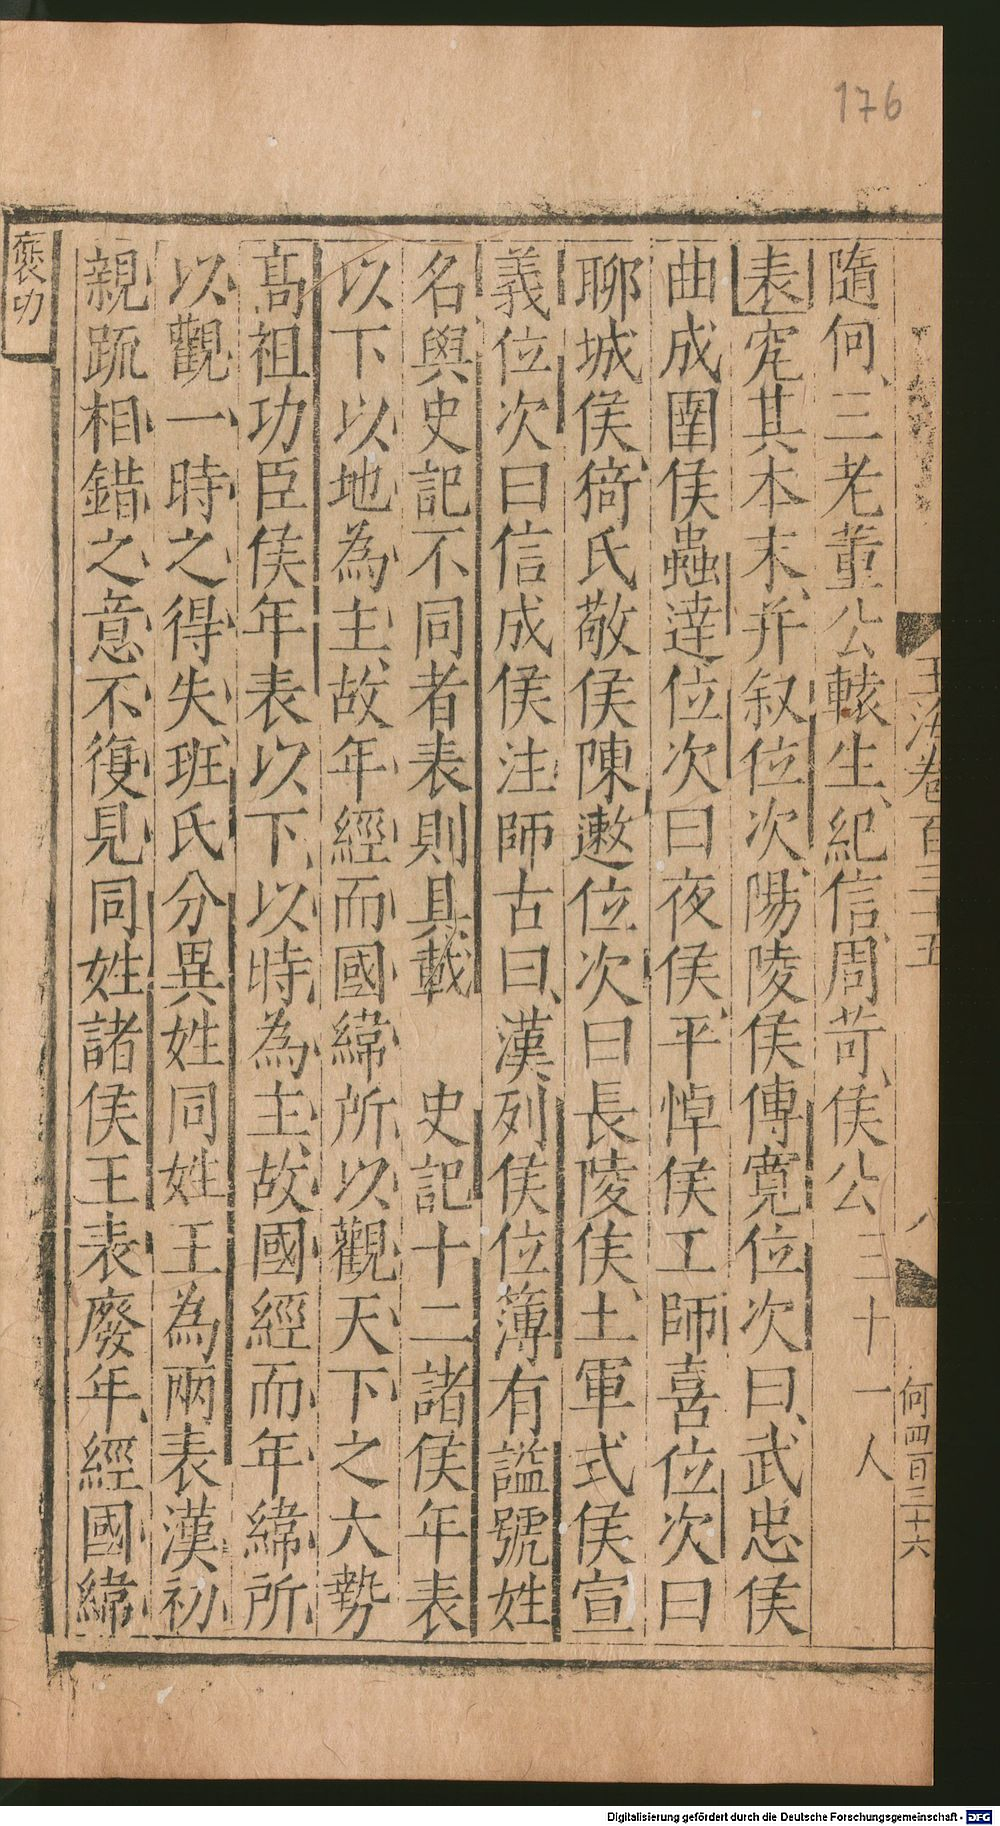 176
玉海卷百三十五
八
何四百三十六
隨何、三老董公轅生、紀信、周苛、侯公三十一人
表㝎其本末、并叙位次、陽陵侯傅寛位次曰、武忠侯
曲成圉侯蟲逹位次曰夜侯、平悼侯工師喜位次曰
聊城侯、猗氏敬侯陳遫位次曰長陵侯、土軍式侯宣
義位次曰信成侯注師古曰、漢列侯位簿有謚號姓
名與史記不同者表則具載　史記十二諸侯年表
以下以地為主、故年經而國緯所以觀天下之大勢
髙祖功臣侯年表以下、以時為主、故國經而年緯所
以觀一時之得失、班氏分異姓同姓王為兩表漢初
親䟽相錯之意不復見同姓諸侯王表廢年、經國緯
褒功
Digitalisierung gefördert durch die Deutsche Forschungsgemeinschaft - DFG